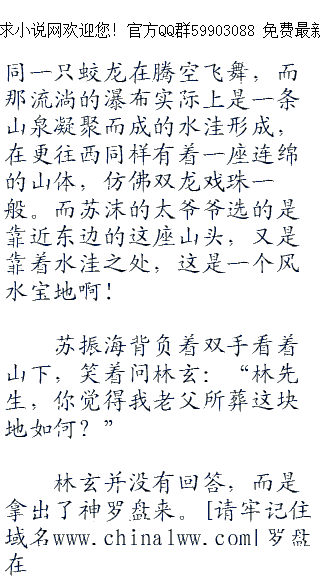 求小说网欢迎您! 官方QQ群59903088 免费最新
同一只蛟龙在腾空飞舞，而
那流淌的瀑布实际上是一条
山泉凝聚而成的水洼形成，
在更往西同样有着一座连绵
的山体，仿佛双龙戏珠一
般。而苏沫的太爷爷选的是
靠近东边的这座山头，又是
靠着水洼之处，这是一个风
水宝地啊！
苏振海背负着双手看着
山下，笑着问林玄：“林先
生，你觉得我老父所葬这块
地如何？”
林玄并没有回答，而是
拿出了神罗盘来。[请牢记住
域名www.china1ww.com|罗盘
在